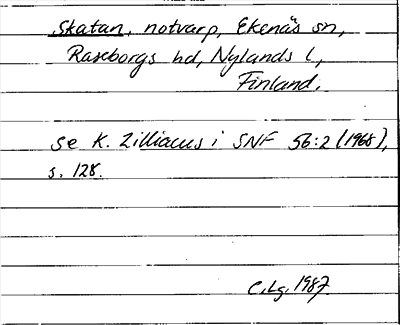 Skatan, notvarp, Ekenäs sn,
Raseborgs hd, Nylands l,
Finland.
se K. Zilliacus i SNF 56:2 (1968),
s. 128.
C.Lg. 1987.